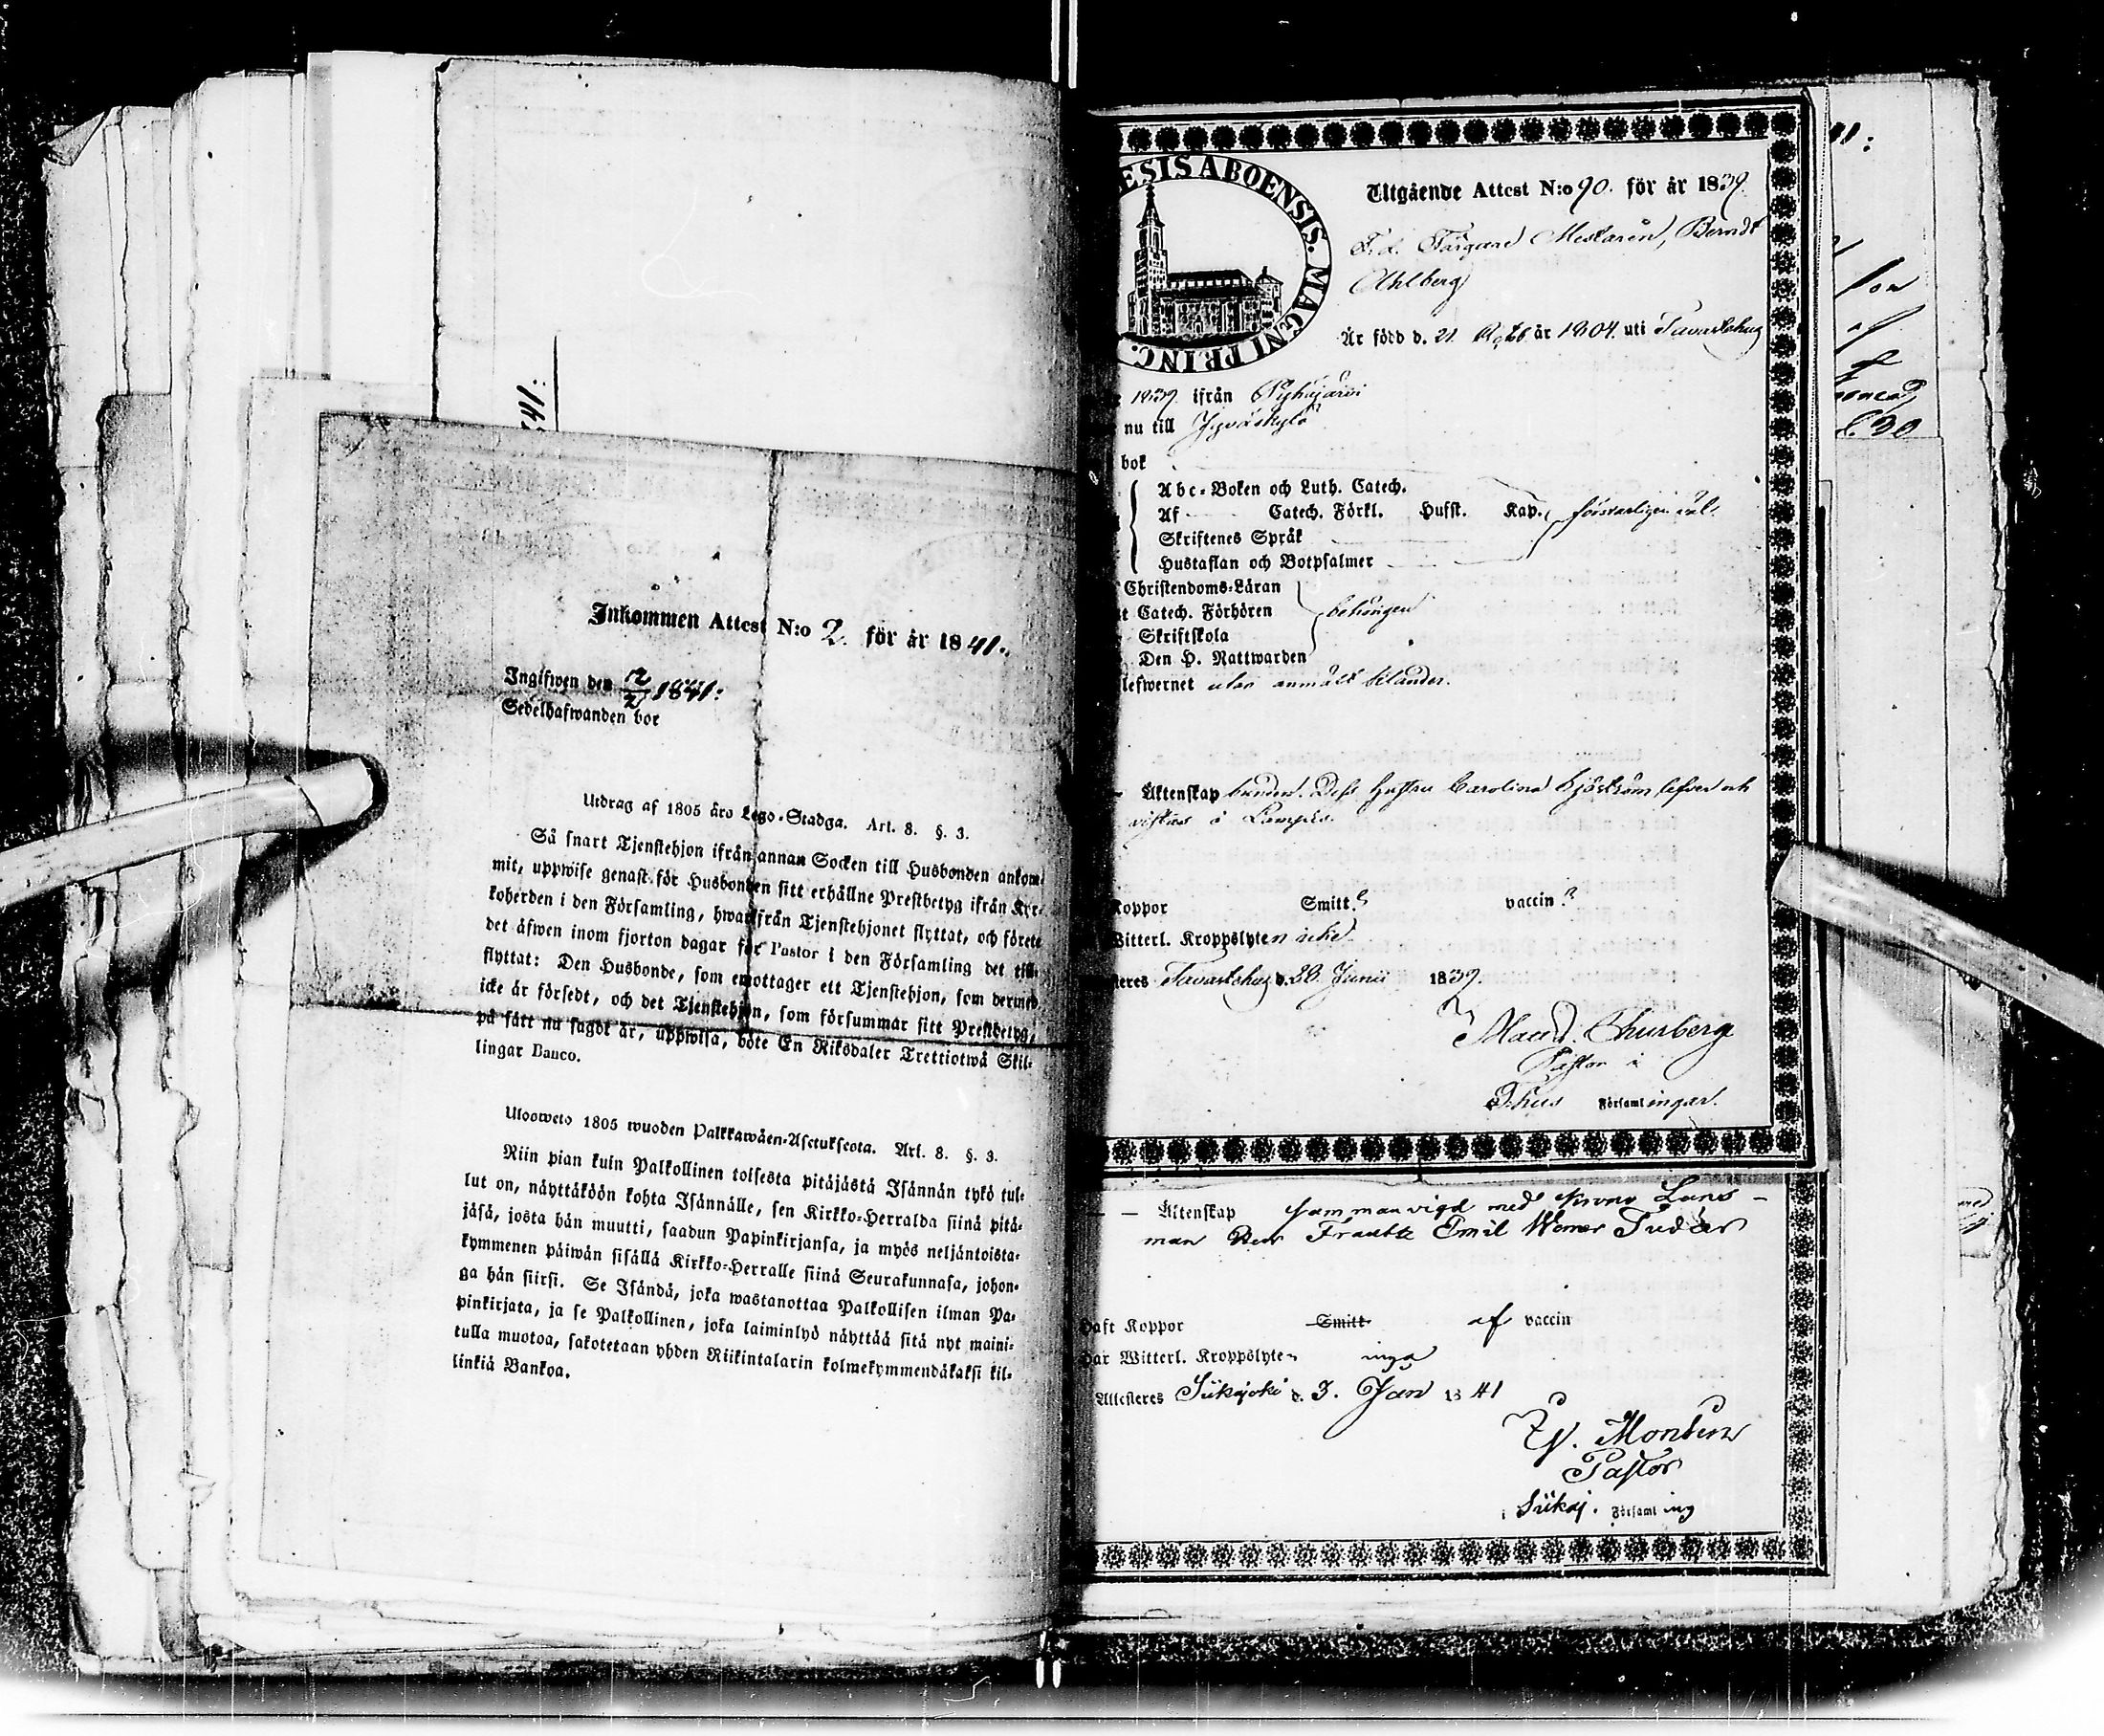 41:
Inkommen Attest N:o 2. för år 1841.
Ingifwen den 2/2 1841:
Sedelhafwanden bor
Utdrag af 1805 års Lego-Stadga. Art. 8. §. 3.
Så snart Tjenstehjon ifrån annan Socken till Husbonden ankom-
mit, uppwise genast för Husbonden sitt erhållne Prestbetyg ifrån Kyr-
koherden i den Församling, hwarifrån Tjenstehjonet flyttat, och förete
det äfwen inom fjorton dagar för Pastor i den Församling det till-
flyttat: Den Husbonde, som emottager ett Tjenstehjon, som dermed
icke är försedt, och det Tjenstehjon, som försummar sitt Prestbetyg,
på sätt nu sagdt är, uppwisa, böte En Riksdaler Trettiotwå Skil-
lingar Banco.
Ulosweto 1805 wuoden Palkkawäen-Asetuksesta. Art. 8. §. 3.
Niin pian kuin Palkollinen toisesta pitäjästä Isännän tykö tul-
lut on, näyttäköön kohta Isännälle, sen Kirkko-Herralda siinä pitä-
jäsä, josta hän muutti, saadun Papinkirjansa, ja myös neljäntoista-
kymmenen päiwän sisällä Kirkko-Herralle siinä Seurakunnasa, johon-
ga hän siirsi. Se Isändä, joka wastanottaa Palkollisen ilman Pa-
pinkirjata, ja se Palkollinen, joka laiminlyö näyttää sitä nyt maini-
tulla muotoa, sakotetaan yhden Riikintalarin kolmekymmendäkaksi kil-
linkiä Bankoa.
ESIS ABOENSIS. MAGNI PRINC.
Utgående Attest N:o 90. för år 1839.
F.d. Färgare Mestaren, Berndt
Ahlberg
Är född d. 21 år 1804. uti Tavastehus
1839. ifrån Pyhäjärvi
nu till Jyväskylä
bok
Abc-Boken och Luth. Catech.
Af Catech. Förkl. Hufst. Kap. försvarligen väl.
Skriftenes Språk
Hustaflan och Botpsalmer
Christendoms-Läran
Catech. Förhören behörigen
Skriftskola
Den H. Nattwarden
lefwernet utan anmält
Äktenskap bunden. Dess Hustru Carolina Sjöström lefver och
vistas i Lampis.
Koppor Smitt.? vaccin.?
Witterl. Kroppslyten icke.
steres Tavastehus d. 20. Junii 1839.
Thurberg
Pastor i
T.hus Församlingar.
Äktenskap Sammanvigd med Krono Läns-
man Herr Emil
haft Koppor Smitt af vaccin
har Witterl. Kroppslyten inga
Attesteres Siikajoki d. 3. Jan 1841
Montin
Pastor
i Siikaj. Församling